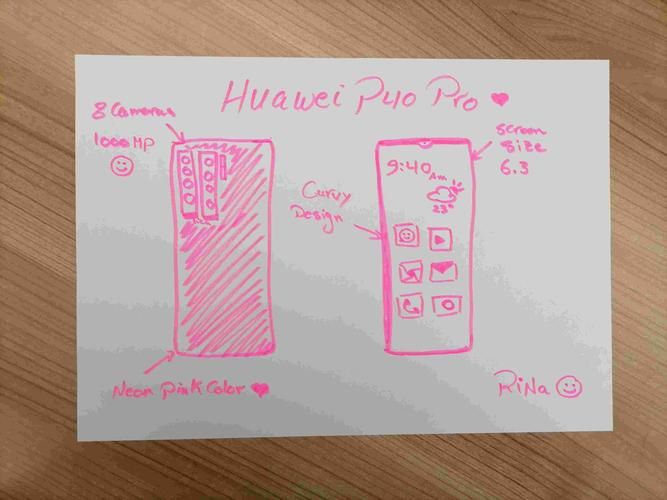 Huawei P40 Pro
8 Cameras
1000 MP
Screen
size
6.3
9:40 Am
23°
Curvy
Design
Neon Pink Color
RiNa